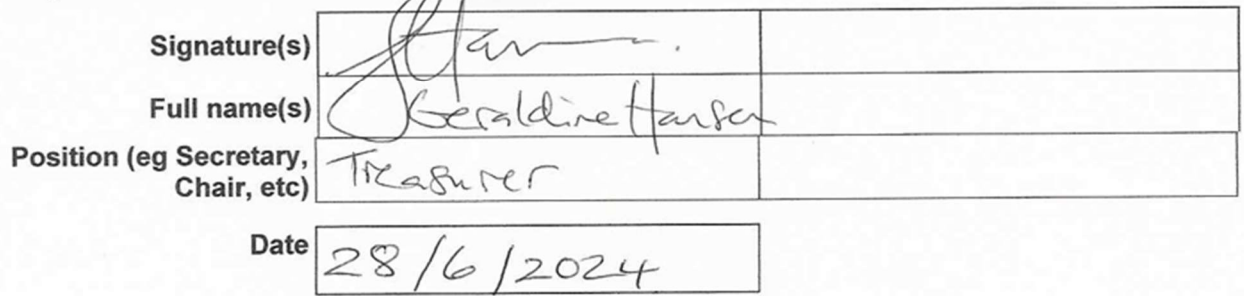 Signature(s)
Full name(s) Geraldine Hansen
Position (eg Secretary, Treasurer
Chair, etc)
Date 28/6/2024